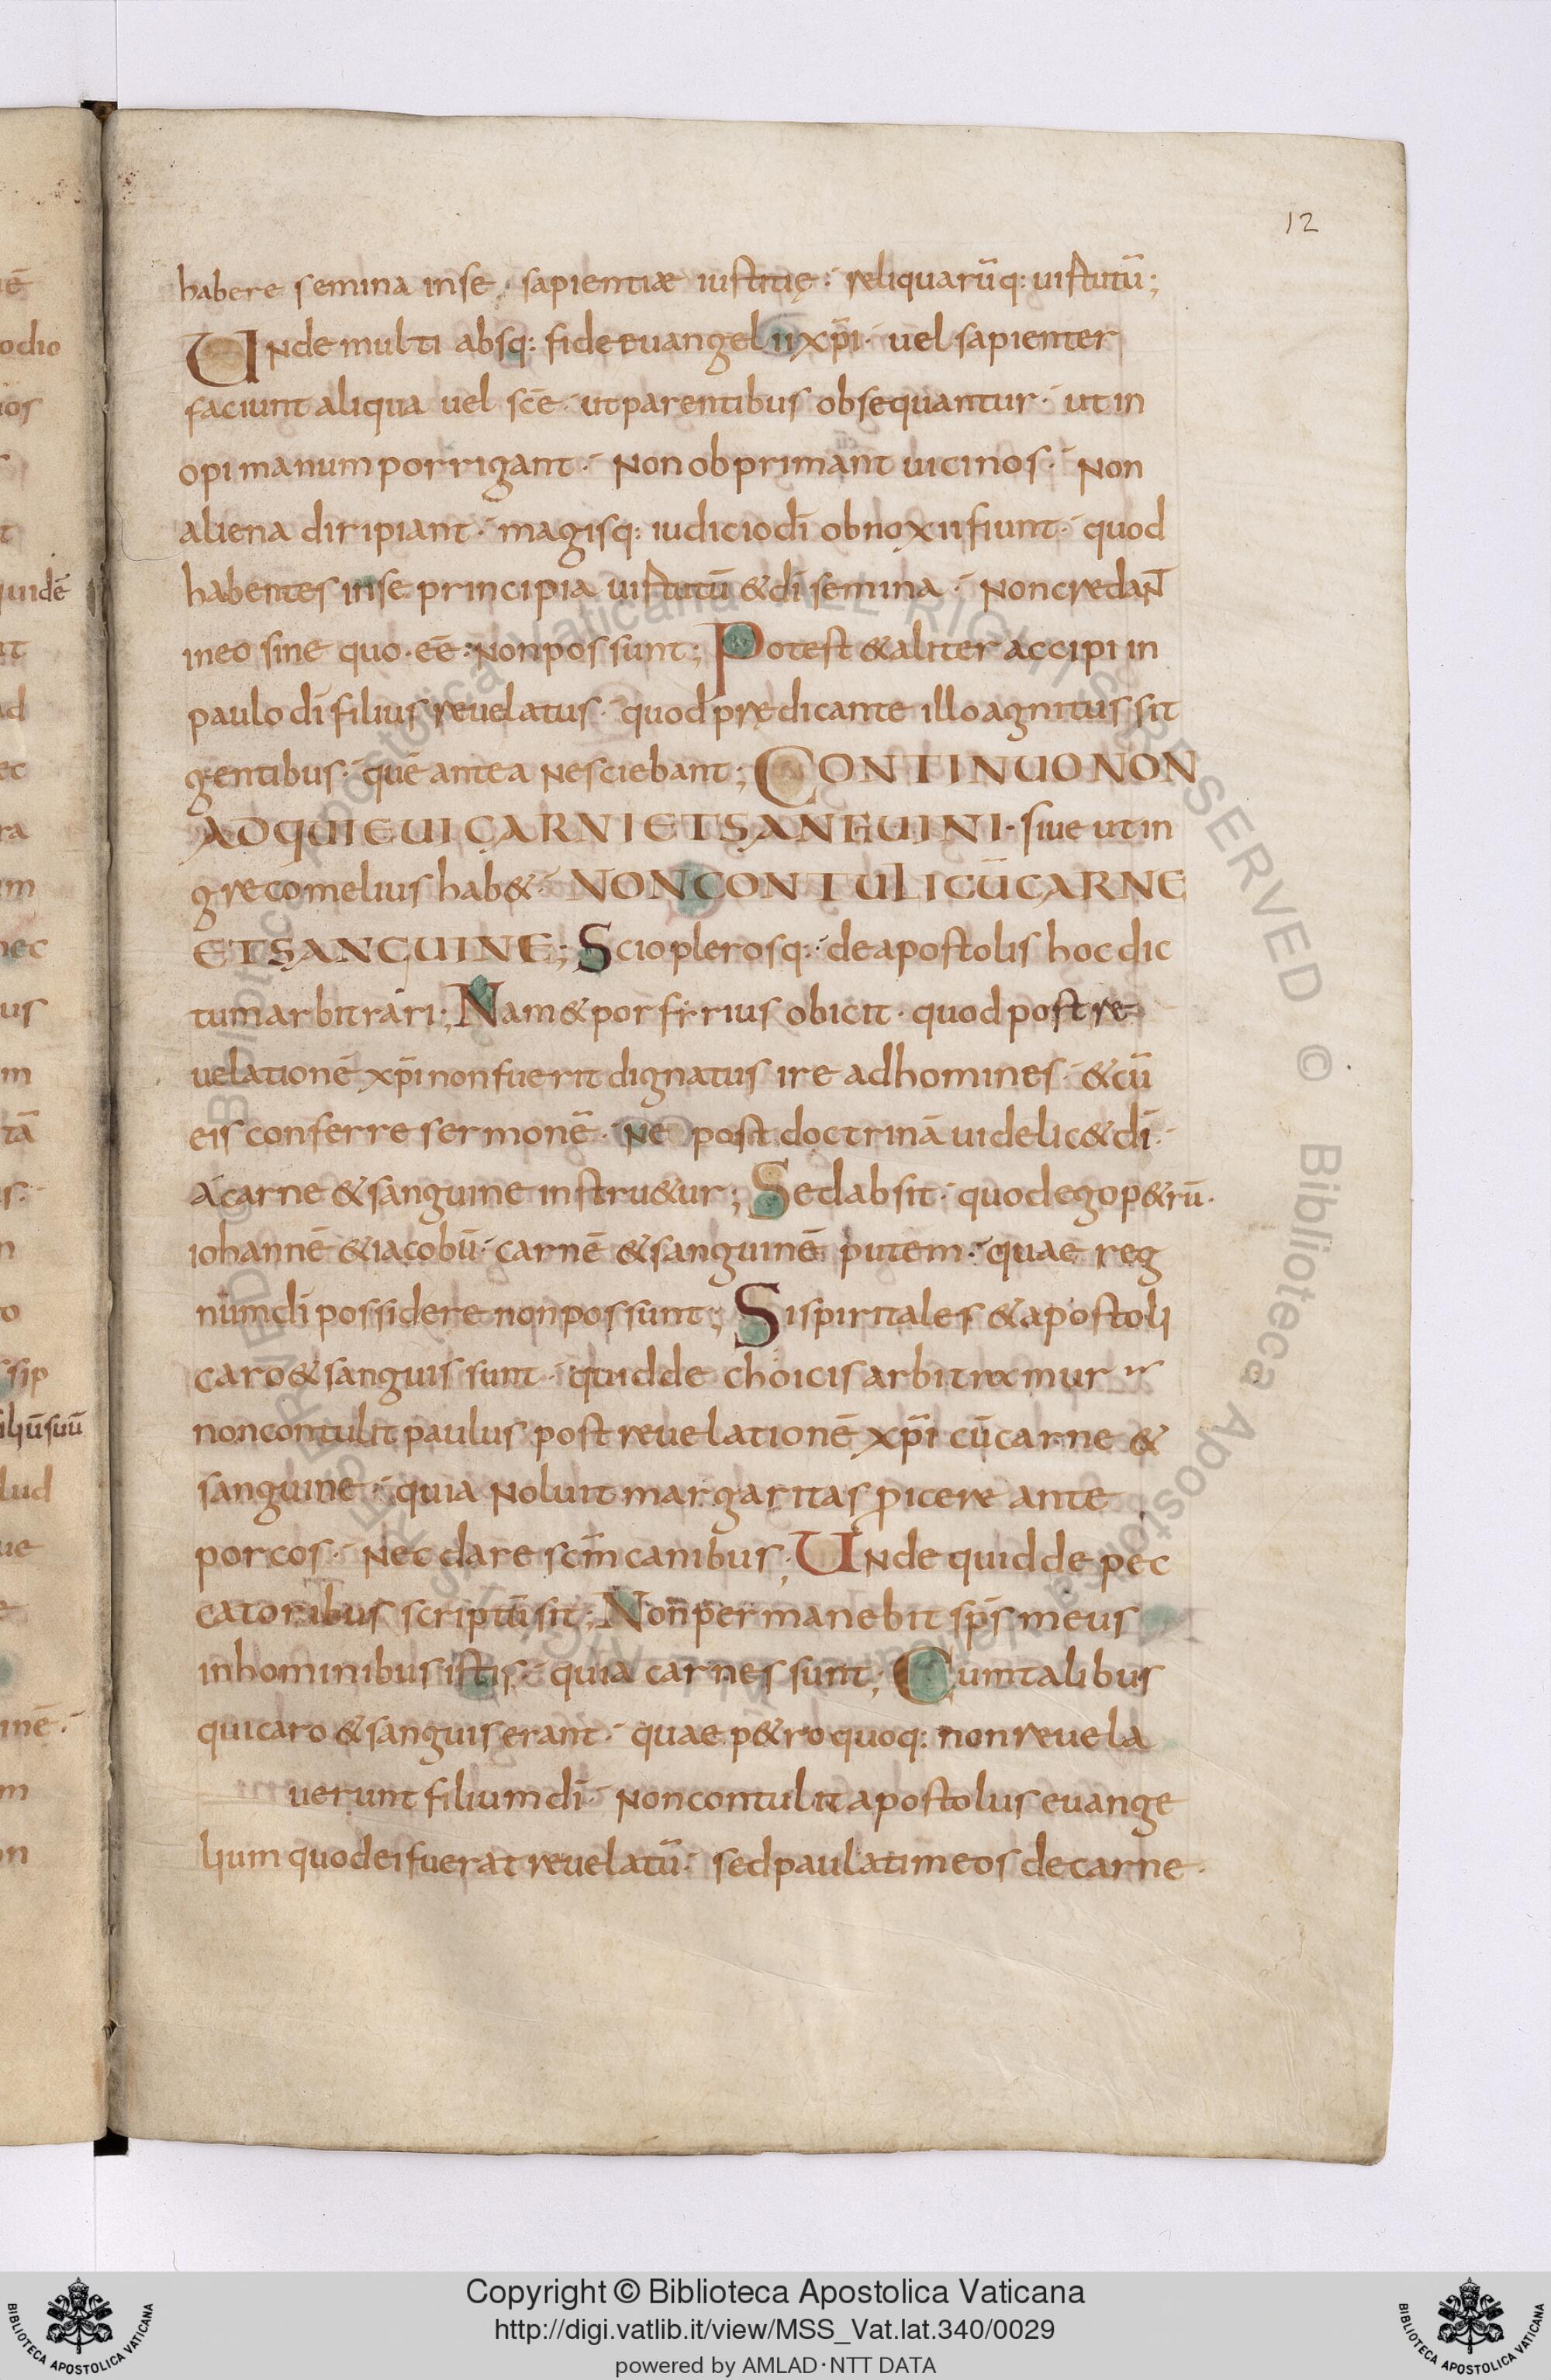 12
habere semina inse · sapientiæ iustitię · reliquarūq: uirtutū;
Unde multi absq: fide euangelii xp̄i · uel sapienter
faciunt aliqua uel scē · ut parentibus obsequantur · ut in
opi manum porrigant · Non obprimant uicinos · Non
aliena diripiant · magisq: iudicio dī obnoxii fiunt · quod
habentes inse principia uirtutū & dī semina · Non credaNT
ineo sine quo · eē · Non possunt; Potest & aliter accipi in
paulo dī filius reuelatus · quod prędicante illo agnitus sit
gentibus · quē antea Nesciebant; CONTINUO NON
ADQUIEUI CARNI ET SANGUINI · siue ut in
greco melius hab& · NON CONTULI CŪ CARNE
ET SANGUINE; Scio plerosq: · de apostolis hoc dic
tum arbitrari; Nam & porfirius obicit · quod post re
uelationē xp̄i non fuerit dignatus ire ad homines · & cū
eis conferre sermonē · Ne post doctrinā uidelic& dī ·
A carne & sanguine instru&ur; Sed absit · quod ego p&rū ·
iohannē & iacobū · carnē & sanguinē putem · quae reg
num dī possidere non possunt; Si spiritales & apostoli
caro & sanguis sunt · quid de choicis arbitramur
non contulit paulus post reuelationē xp̄i cū carne &
sanguine · quia Noluit margaritas p̱icere ante
porcos · Nec dare scm̄ canibus; Unde quid de pec
catoribus scriptū sit; Non permanebit sp̄s meus
in hominibus istis · quia carnes sunt; Cum talibus
qui caro & sanguis erant · quae p&ro quoq: non reuela
uerunt filium dī · Non contulit apostolus euange
lium quod ei fuerat reuelatū · sed paulatim eos de carne ·
odio
ios
uidē
ad
ec
ra
um
nec
us
m
tā
ssip
iliū suū
lud
ue
inē ·
m
on
© Biblioteca Apostolica Vaticana ALL RIGHTS RESERVED
Copyright © Biblioteca Apostolica Vaticana
http://digi.vatlib.it/view/MSS_Vat.lat.340/0029
powered by AMLAD·NTT DATA
BIBLIOTECA APOSTOLICA VATICANA
BIBLIOTECA APOSTOLICA VATICANA